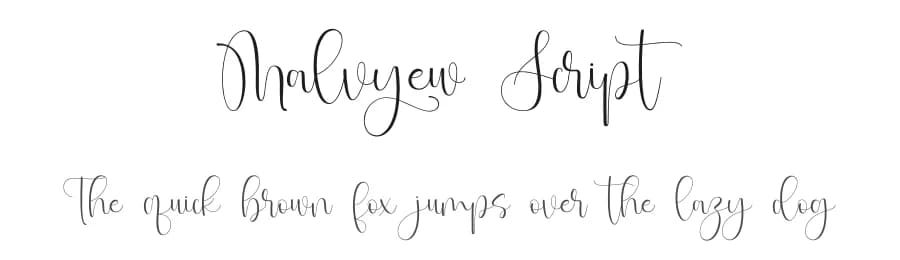 Malvyew Script
The quick brown fox jumps over the lazy dog